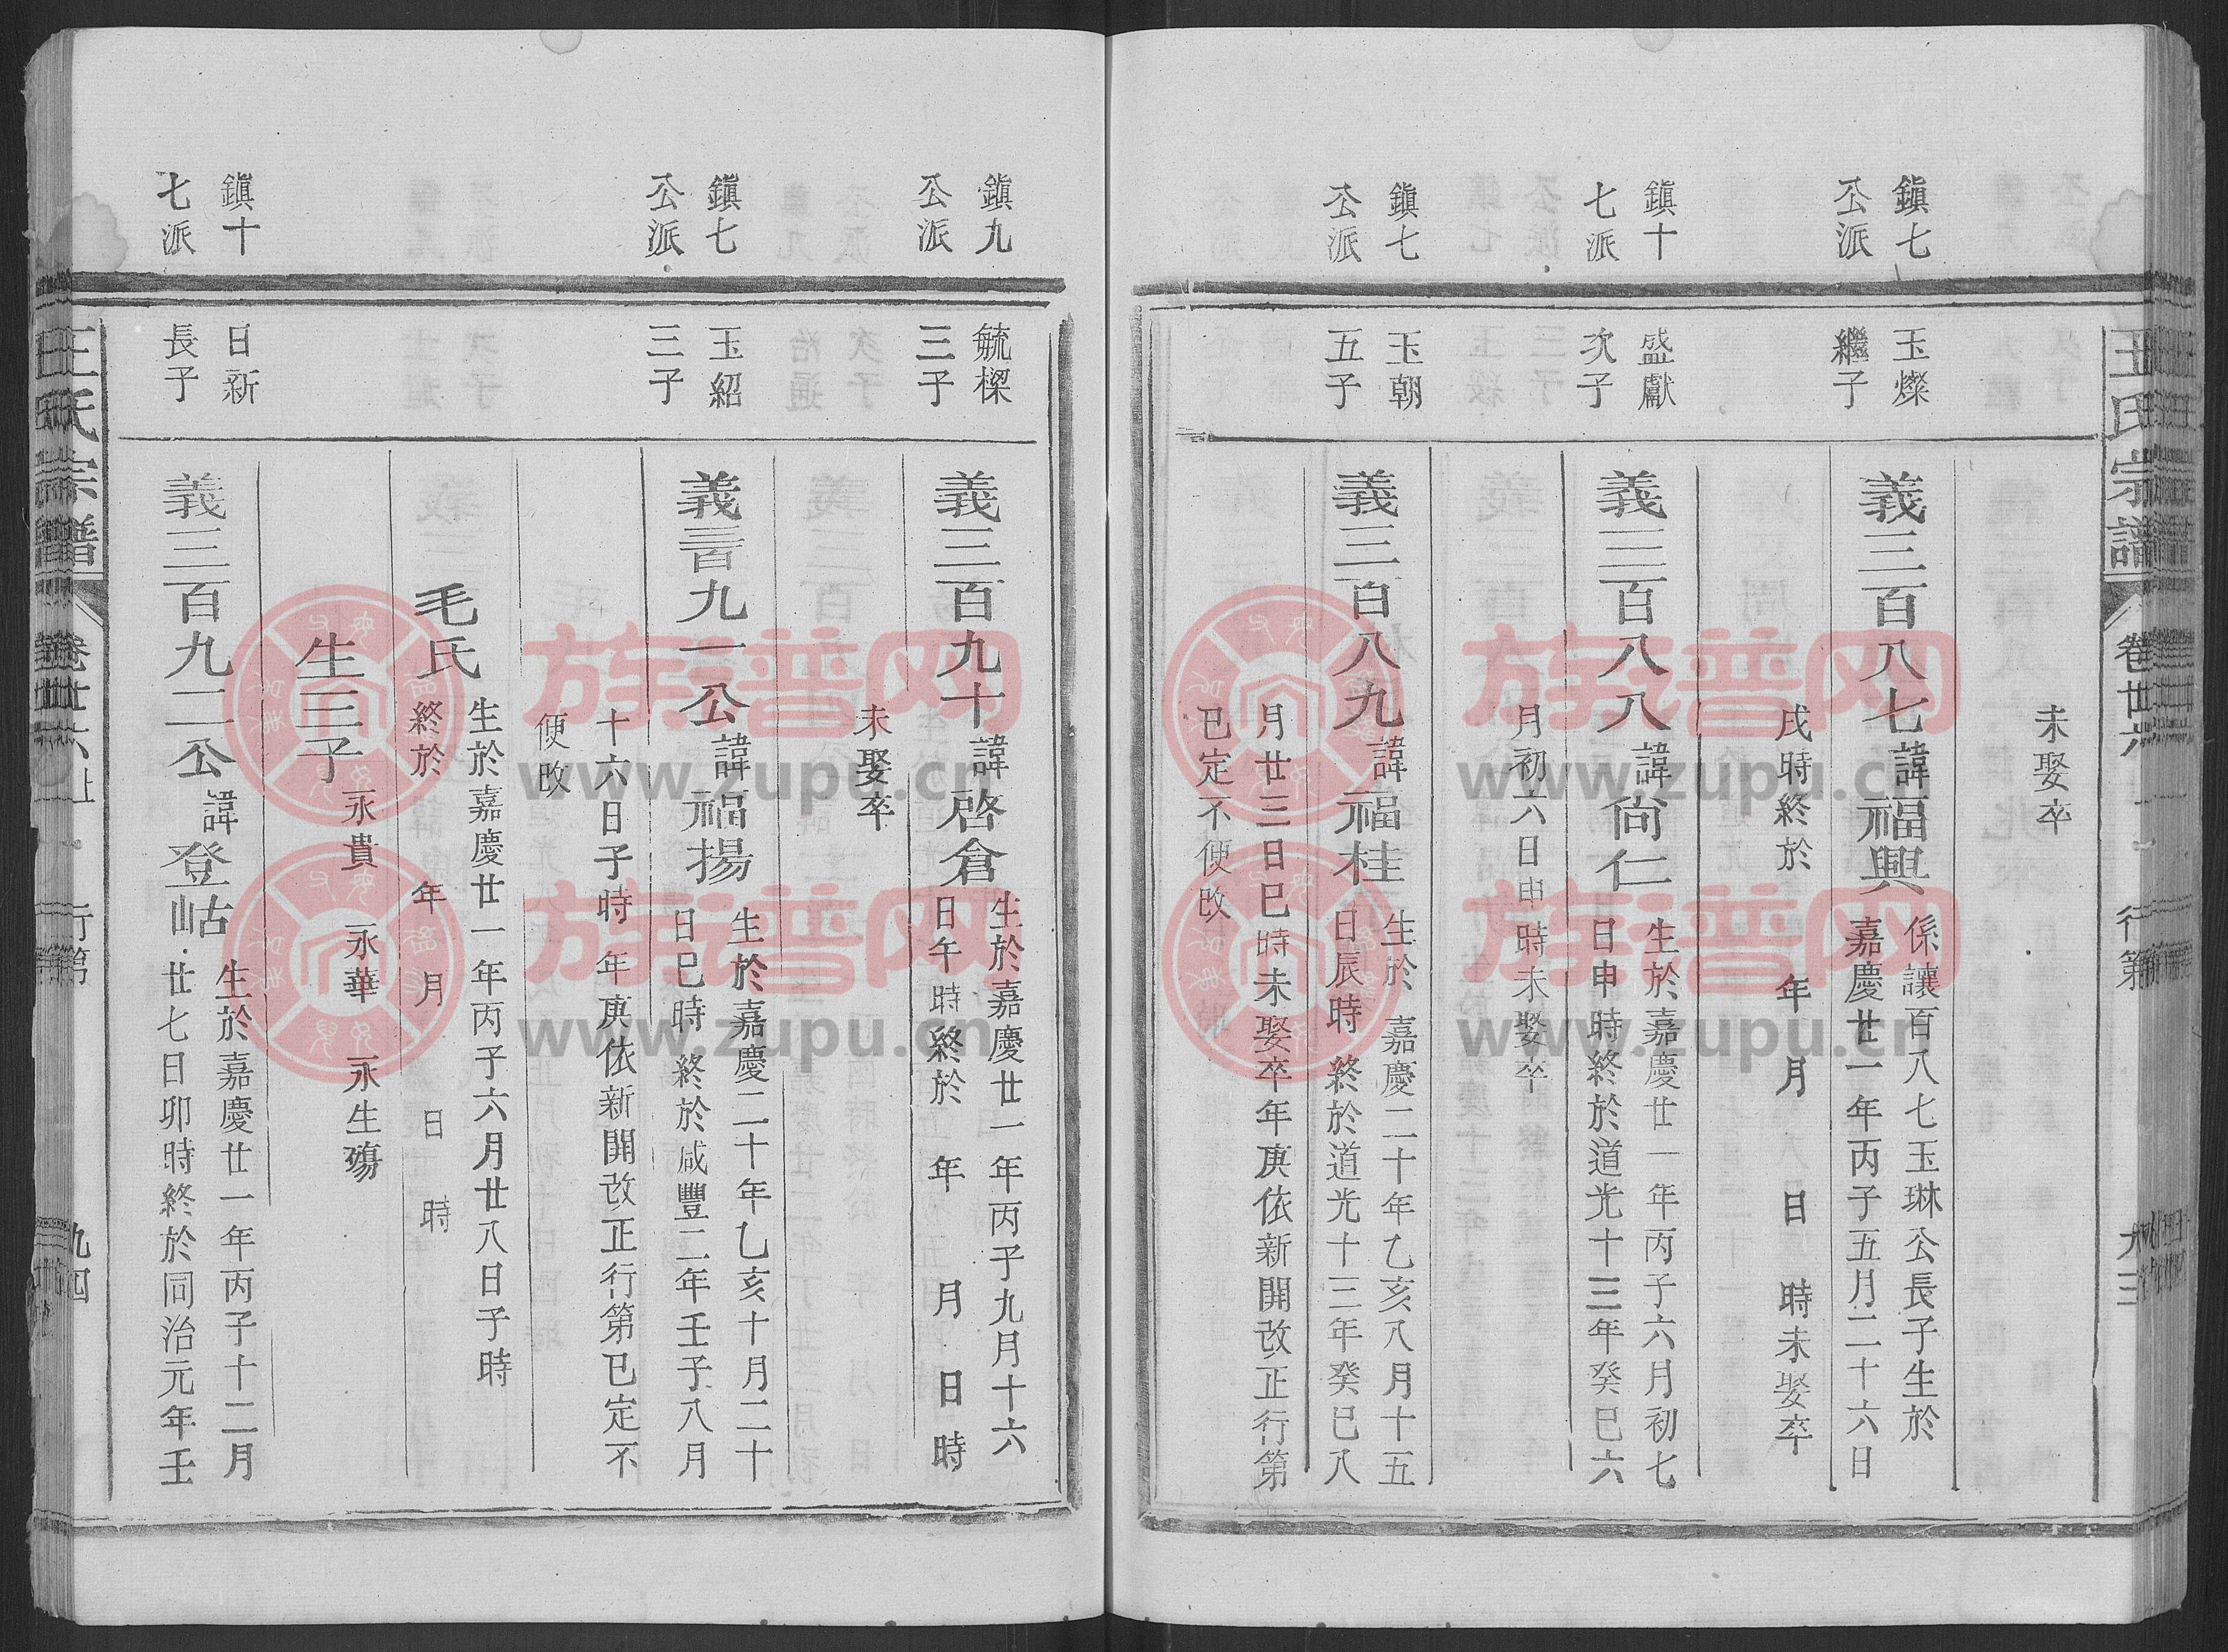 王氏宗譜
卷廿六
行第
九三
未娶卒
鎮七
公派
玉燦
繼子
義三百八七諱福興
係讓百八七玉琳公長子生於
嘉慶廿一年丙子五月二十六日
戌時終於 年 月 日 時未娶卒
鎮十
七派
盛獻
次子
義三百八八諱尙仁
生於嘉慶廿一年丙子六月初七
日申時終於道光十三年癸巳六
月初六日申時未娶卒
鎮七
公派
玉朝
五子
義三百八九諱福桂
生於嘉慶二十年乙亥八月十五
日辰時終於道光十三年癸巳八
月廿三日巳時未娶卒年庚依新開改正行第
已定不便改
鎮九
公派
毓樑
三子
義三百九十諱啓倉
生於嘉慶廿一年丙子九月十六
日午時終於 年 月 日 時
未娶卒
鎮七
公派
玉紹
三子
義三百九一公諱福揚
生於嘉慶二十年乙亥十月二十
日巳時終於咸豐二年壬子八月
十六日子時年庚依新開改正行第已定不
便改
毛氏
生於嘉慶廿一年丙子六月廿八日子時
終於 年 月 日 時
生三子
永貴 永華 永生殤
鎮十
七派
日新
長子
義三百九二公諱登岵
生於嘉慶廿一年丙子十二月
廿七日卯時終於同治元年壬
王氏宗譜
卷廿六
行第
九四
族譜网
www.zupu.cn
族譜网
www.zupu.cn
族譜网
www.zupu.cn
族譜网
www.zupu.cn